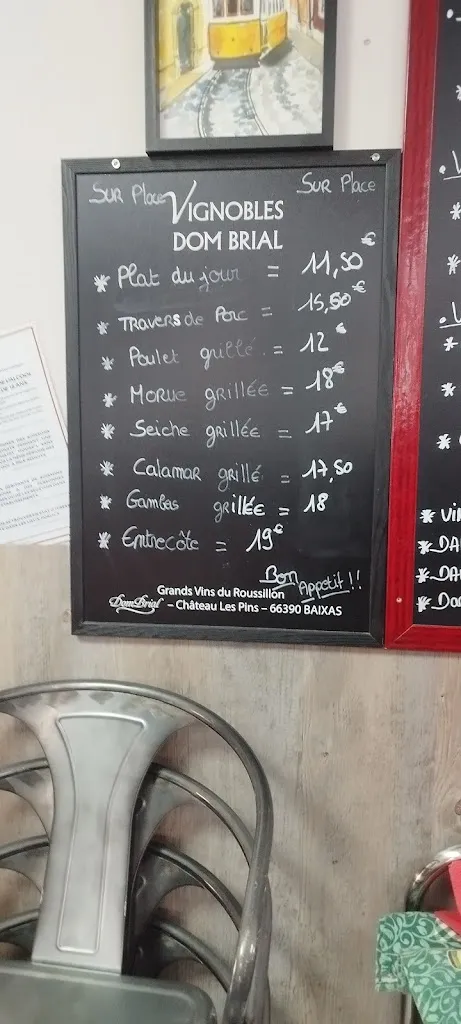 SUR PLACE
SUR PLACE
VIGNOBLES
DOM BRIAL
* Plat du jour = 11,50 €
* TRAVERS de Porc = 15,50 €
* Poulet grillé = 12 €
* MORUE grillée = 18 €
* Seiche grillée = 17 €
* CALAMAR grillé = 17,50
* Gambas grillée = 18
* Entrecôte = 19 €
Bon Appetit !!
Grands Vins du Roussillon
DomBrial – Château Les Pins – 66390 BAIXAS